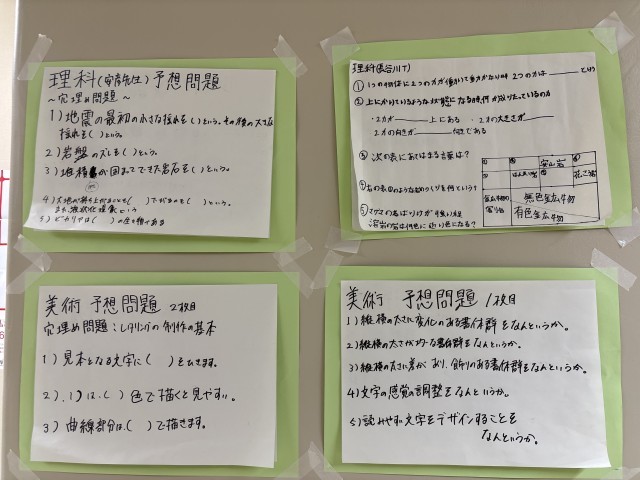 理科(安藤先生)予想問題
～穴埋め問題～
1)地震の最初の小さな揺れを( )という。その後の大きな
揺れを( )という。
2)岩盤のズレを( )という。
3)堆積 が固まってできた岩石を( )という。
4)大地が持ち上がることを( )下がるのを( )という。
また、液状化現象という
5)ビカリアは( )の生き物である
理科(長谷川T)
①1つの物体に2つの力が働いて動かない時 2つの力は という
②上にかいているような状態になる時、何が成りたっているのか
・2力が 上にある ・2力の大きさが
・2力の向きが 向きである
③次の表にあてはまる言葉は?
安山岩
はんれい岩
花こう岩
無色鉱物
有色鉱物
鉱物の
割合
④右の表④のようなものつくりを何という?
⑤マグマのねばりけが強い程
溶岩の色は何色に近い色になる?
美術 予想問題 2枚目
穴埋め問題:レタリングの制作の基本
1)見本となる文字に( )をひきます。
2).1)は、( )色で描くと見やすい。
3)曲線部分は、( )で描きます。
美術 予想問題 1枚目
1)縦横の太さに変化のある書体群をなんというか。
2)縦横の太さが均一な書体群をなんというか。
3)縦横の太さに差があり、飾りのある書体群をなんというか。
4)文字の感覚の調整をなんというか。
5)読みやすい文字をデザインすることを
なんというか。